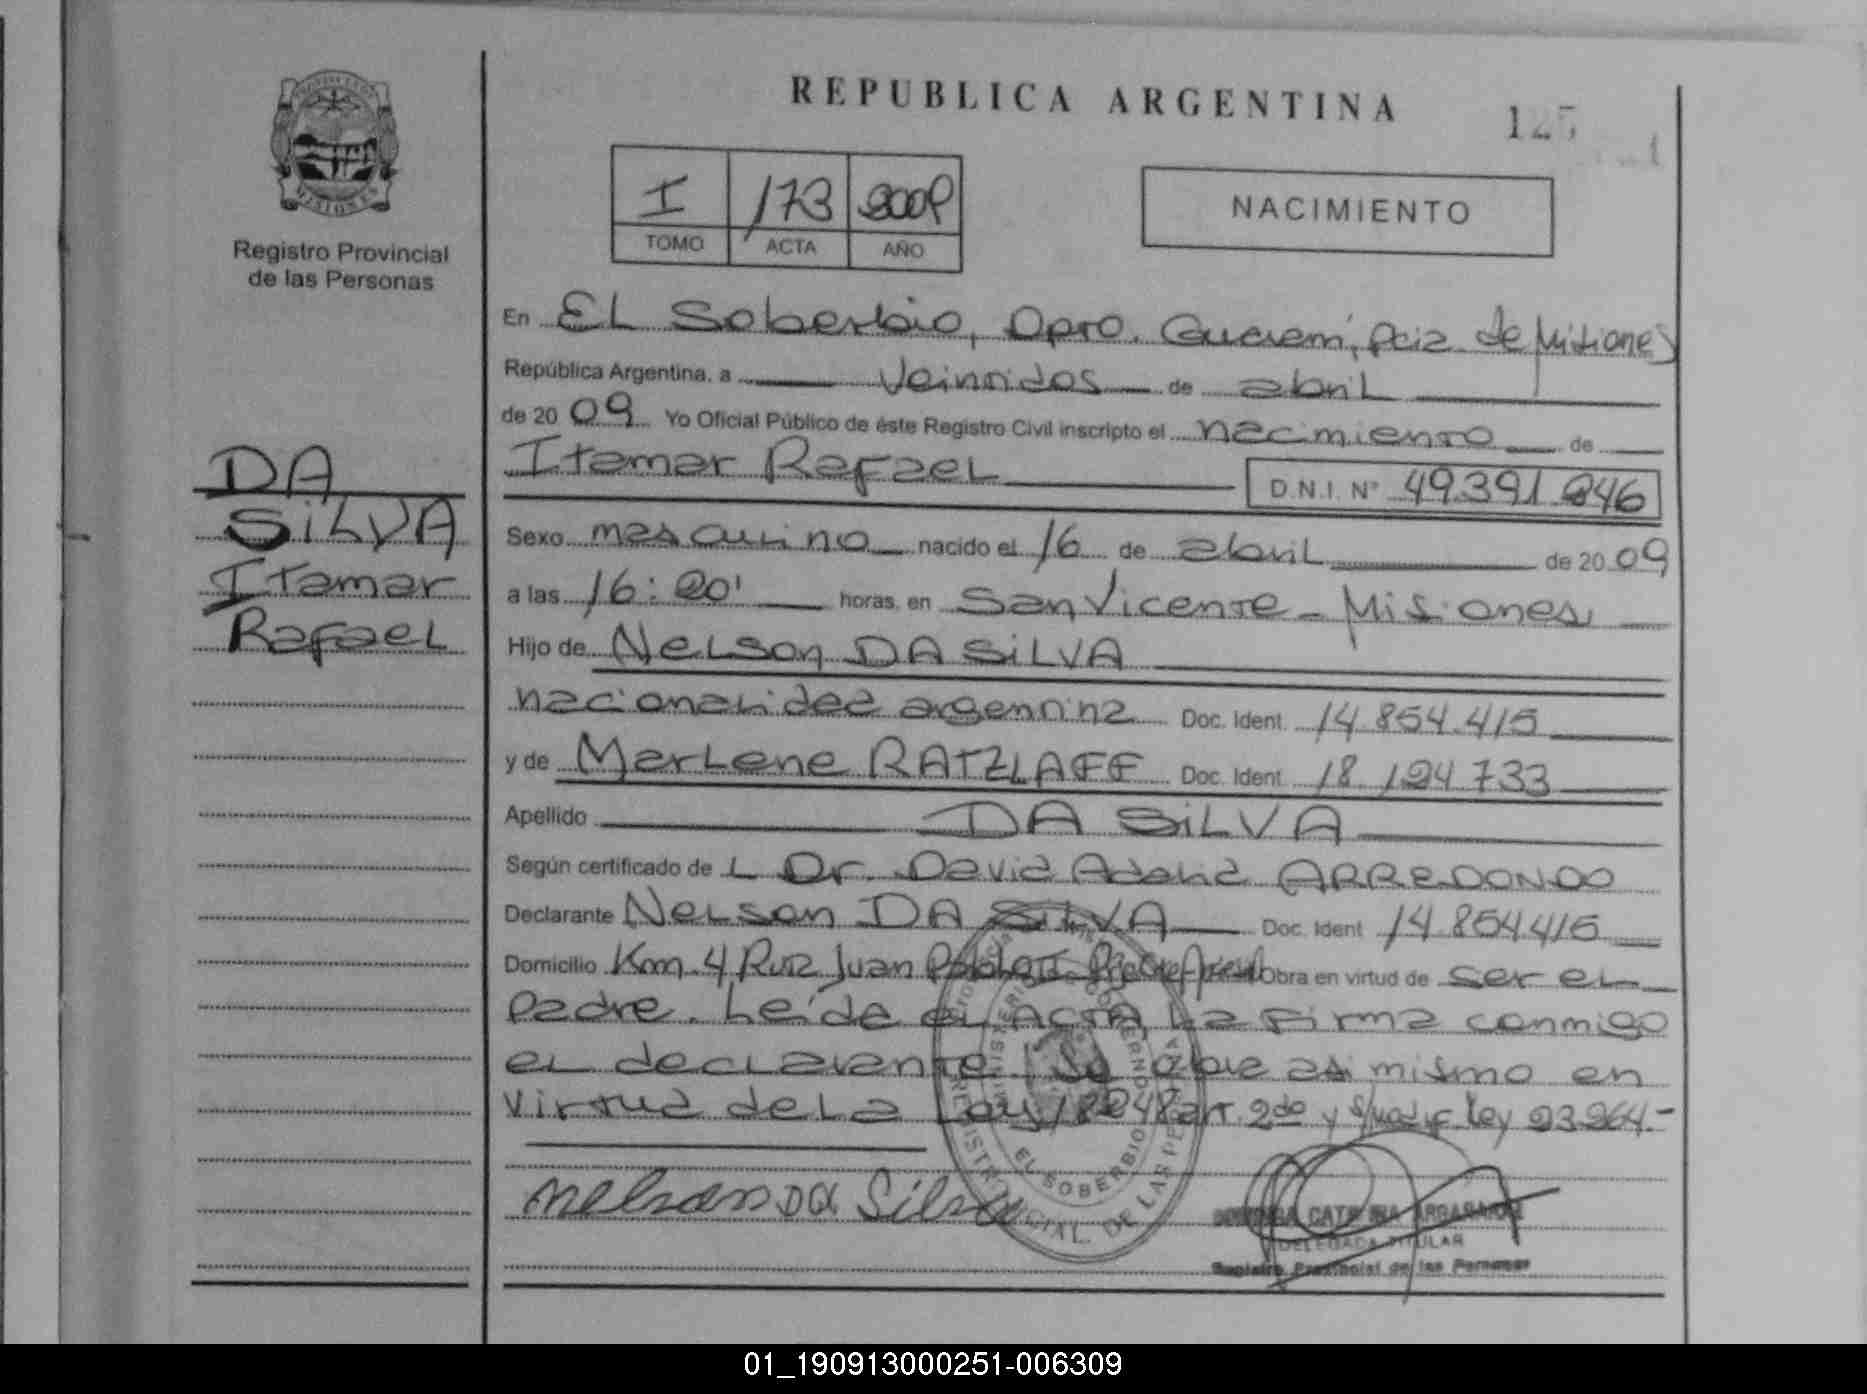 REPUBLICA ARGENTINA
125
Registro Provincial
de las Personas
I 173 2009
TOMO ACTA AÑO
NACIMIENTO
DA
SILVA
Itamar
Rafael
En EL Soberbio, Dpto. Guaraní, Pcia de Misiones
República Argentina, a Veintidos de abril
de 20 09 Yo Oficial Público de éste Registro Civil inscripto el nacimiento de
Itamar Rafael D.N.I. Nº 49.391.846
Sexo masculino nacido el 16 de abril de 20 09
a las 16:20' horas, en San Vicente - Misiones
Hijo de Nelson DA SILVA
nacionalidad argentina Doc. Ident. 14.854.415
y de Marlene RATZLAFF Doc. Ident. 18.124.733
Apellido DA SILVA
Según certificado de L Dr. David Adalid ARREDONDO
Declarante Nelson DA SILVA Doc. Ident 14.854.415
Domicilio Km. 4 Ruta Juan Obra en virtud de ser el
padre. Leída el ACTA La firma conmigo
el declarante Se abre asi mismo en
virtud de La Ley 18248 art. 2do y s/modif. ley 23.264.-
nelson Da Silva
MINISTERIO GOBIERNO
EL SOBERBIO
CATALINA
DELEGADA TITULAR
Registro Provincial de las Personas
01_190913000251-006309